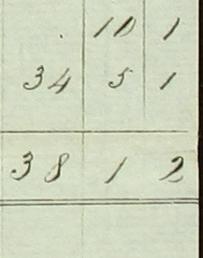 . 10 1
34 5 1
38 1 2